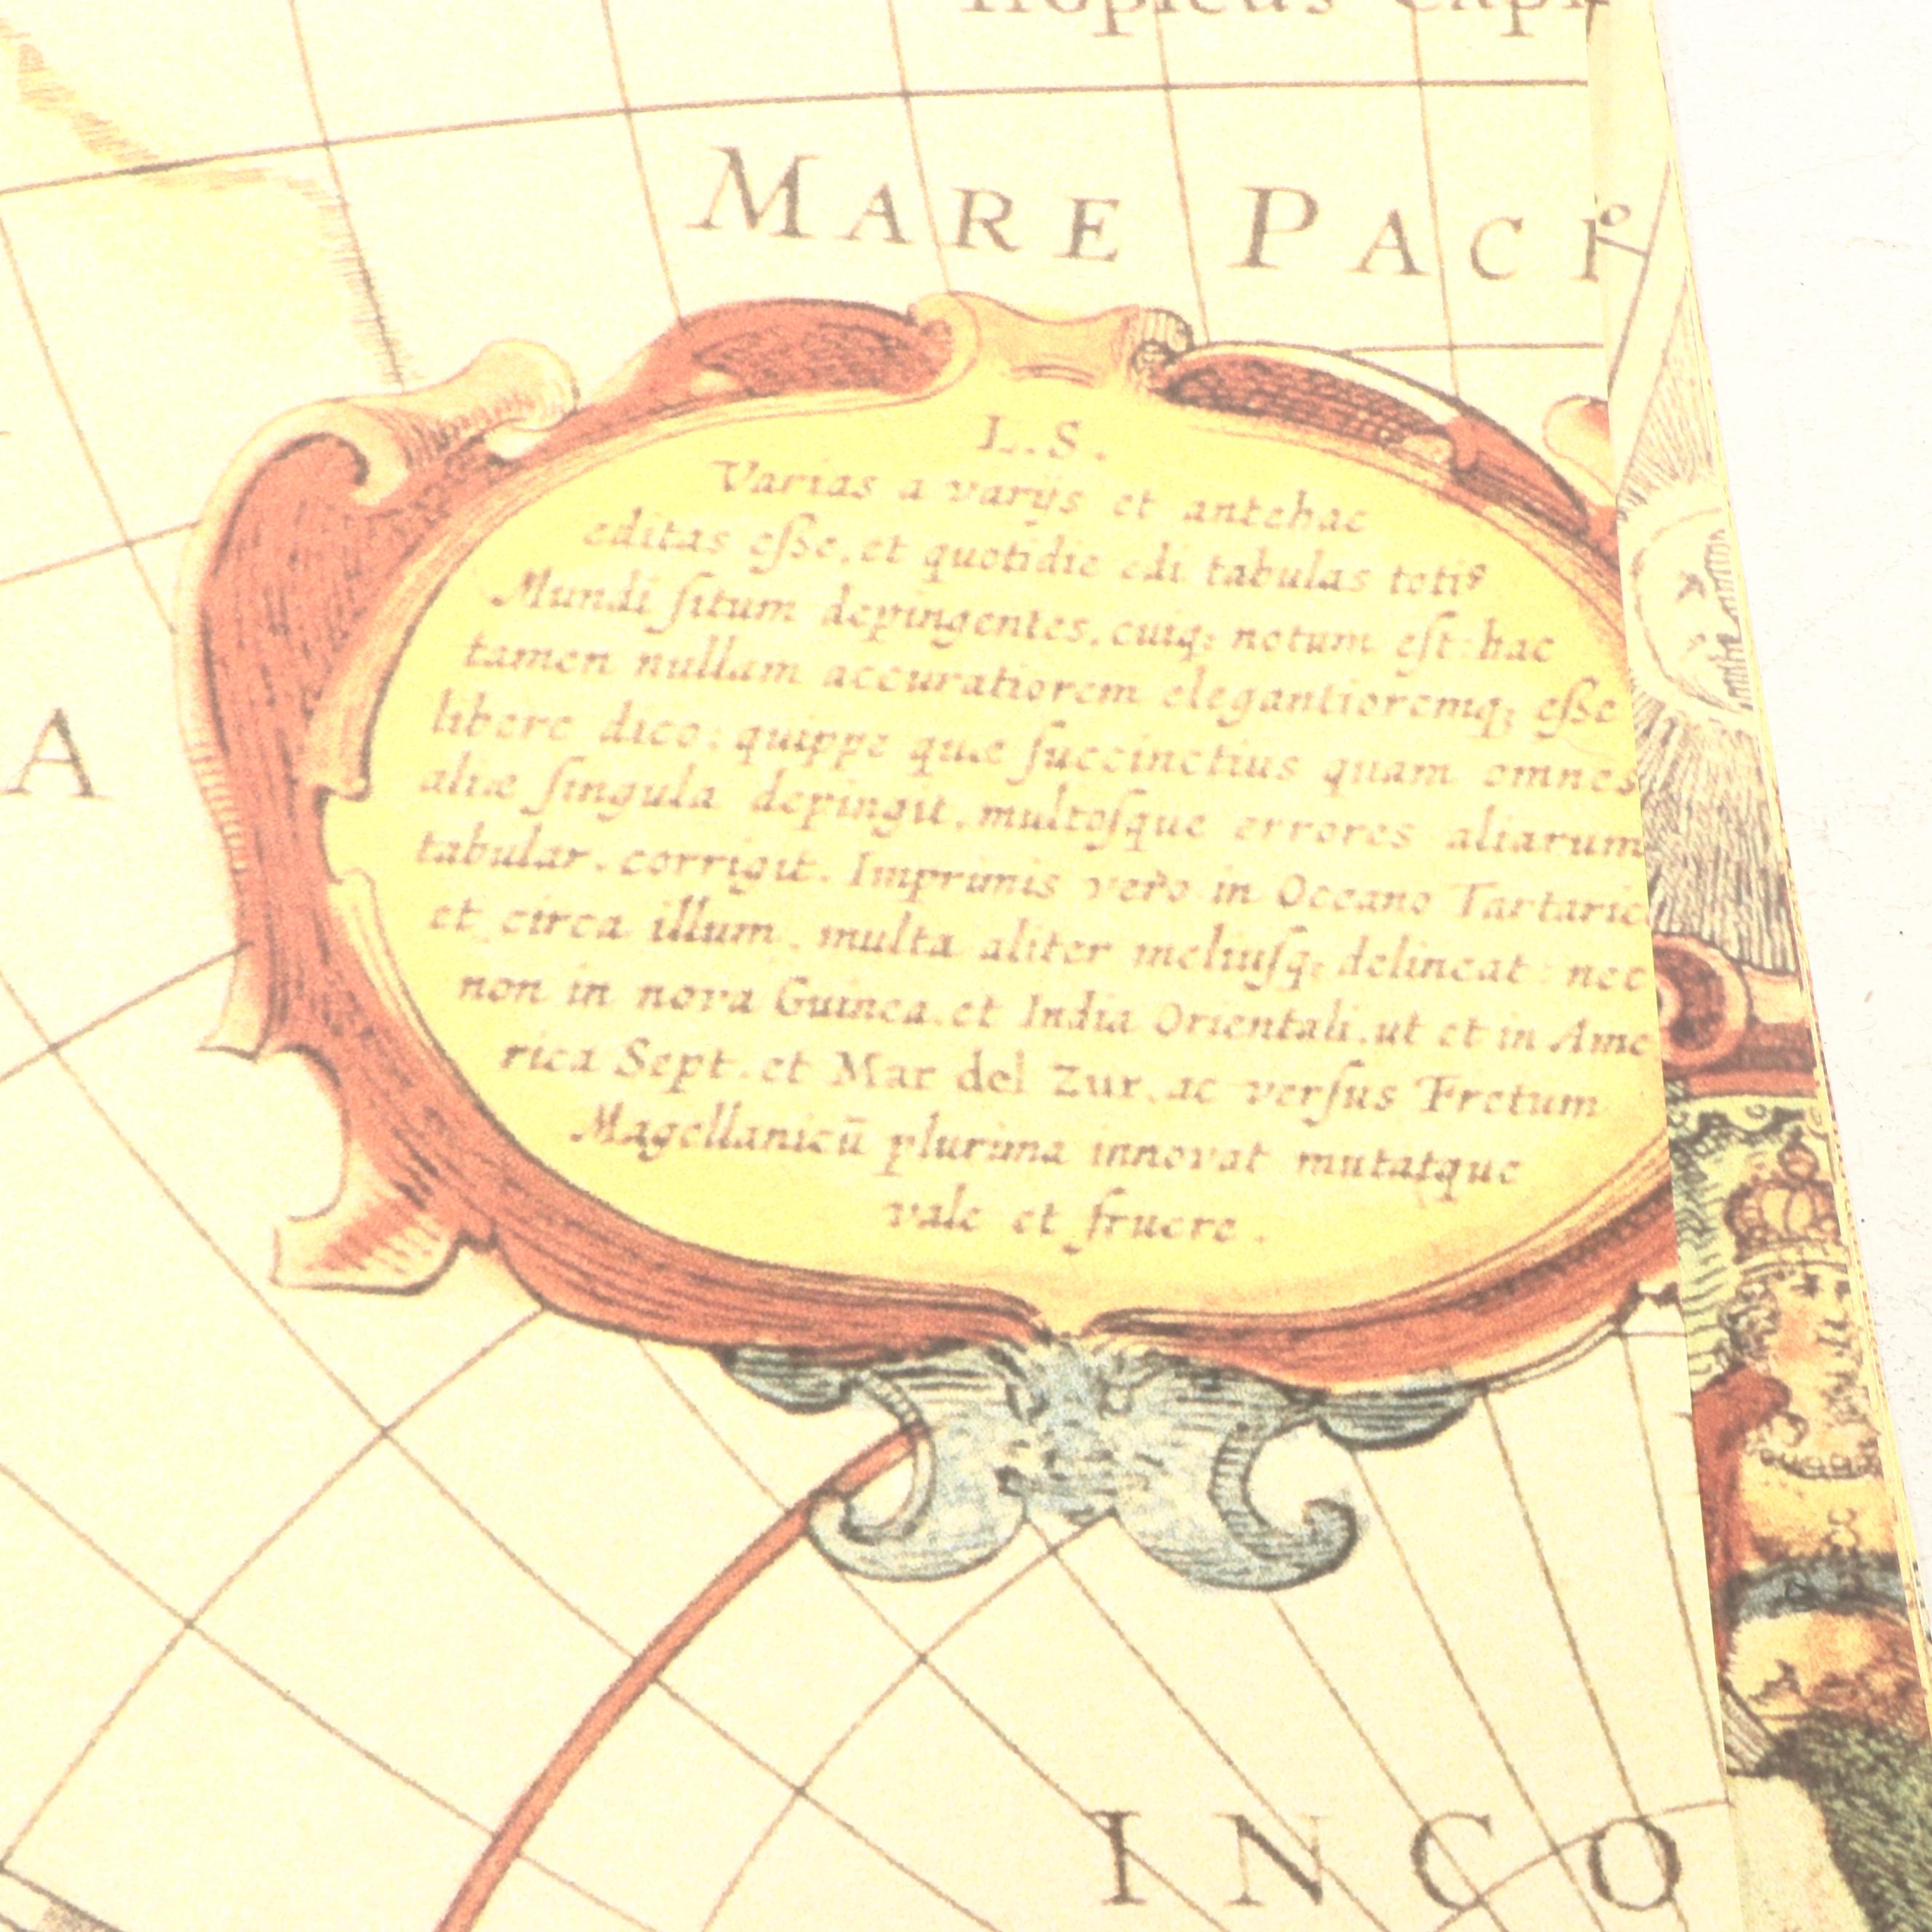 Tropicus Capr
MARE PACI
L. S.
Varias a varijs et antehac
editas eſse, et quotidie edi tabulas totiꝰ
Mundi ſitum depingentes, cuiq; notum eſt: hac
tamen nullam accuratiorem elegantioremq; eſse
libere dico; quippe quæ ſuccinctius quam omnes
aliæ ſingula depingit, multoſque errores aliarum
tabular. corrigit. Imprimis vero in Oceano Tartaric
et circa illum, multa aliter meliuſq; delineat: nec
non in nova Guinea, et India Orientali, ut et in Ame
rica Sept. et Mar del Zur, ac verſus Fretum
Magellanicū plurima innovat mutatque
vale et fruere.
A
INCO